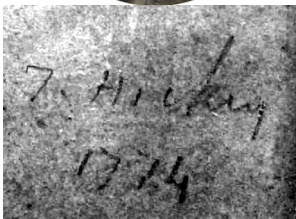 T. Hickey
1774